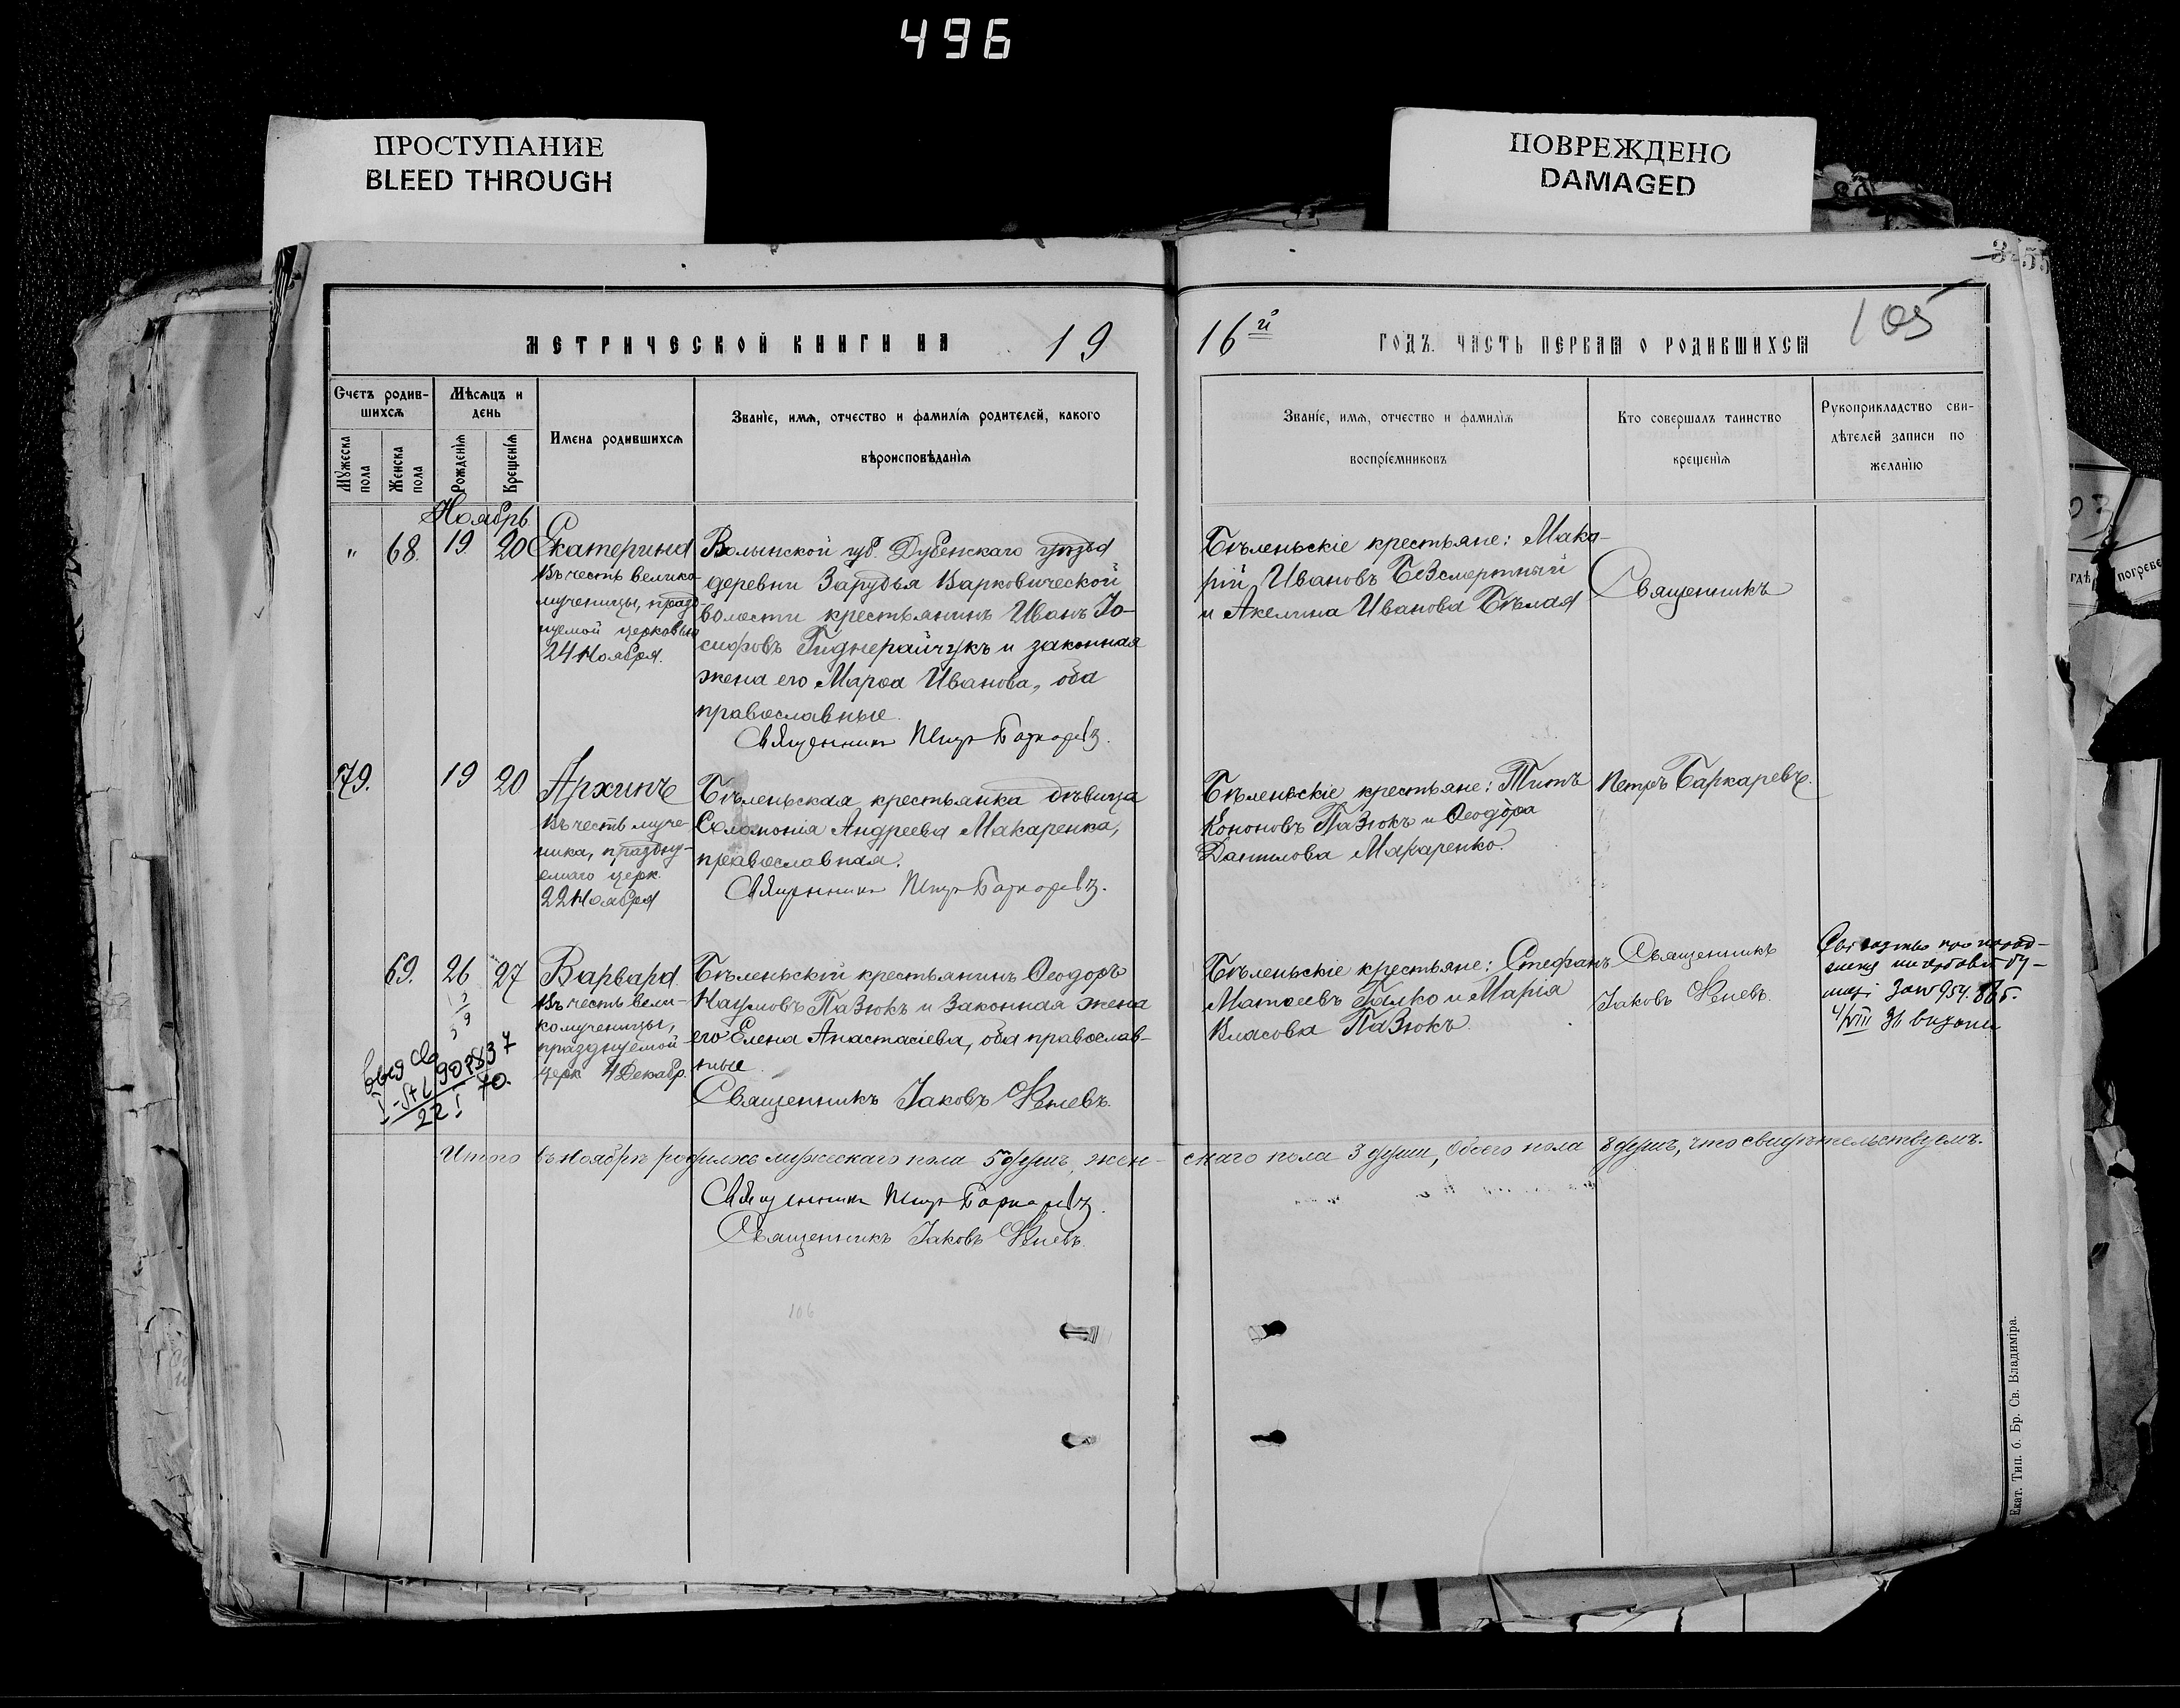 496
ПРОСТУПАНИЕ
BLEED THROUGH
ПОВРЕЖДЕНО
DAMAGED
МЕТРИЧЕСКОЙ КНИГИ НА 19
16й ГОДЪ. ЧАСТЬ ПЕРВАЯ О РОДИВШИХСЯ
105
Счетъ родив-
шихсѧ
Мѣсѧцъ и
день
Мужеска
пола
Женска
пола
Рожденіѧ
Крещеніѧ
Имена родившихсѧ
Званіе, имѧ, отчество и фамиліѧ родителей, какого
вѣроисповѣданіѧ
Званіе, имѧ, отчество и фамиліѧ
воспріемниковъ
Кто совершалъ таинство
крещеніѧ
Рукоприкладство сви-
дѣтелей записи по
желанію
Ноябрь
" 68. 19 20 Екатерина
Въ честь велико-
мученицы, празд-
нуемой церковью
24 Ноября.
Волынской губ. Дубенскаго уѣзда
деревни Зарудья Варковической
волости крестьянинъ Иванъ Іо-
сифовъ Гиднерайчукъ и законная
жена его Марѳа Иванова, оба
православные.
Священникъ Петръ Баркаревъ.
Бѣленьскіе крестьяне: Мака-
рій Ивановъ Безсмертный
и Акелина Иванова Бѣлая
Священникъ
79. 19 20 Архипъ
Въ честь муче-
ника, праздну-
емаго церк.
22 Ноября
Бѣленьская крестьянка дѣвица
Соломонія Андреева Макаренка,
православная.
Священникъ Петръ Баркаревъ.
Бѣленьскіе крестьяне: Титъ
Кононовъ Пазюкъ и Ѳеодора
Данилова Макаренко.
Петръ Баркаревъ.
69. 26 27 Варвара
Въ честь вели-
комученицы,
празднуемой
церк 4 Декабр.
Бѣленьскій крестьянинъ Ѳеодоръ
Наумовъ Пазюкъ и законная жена
его Елена Анастасіева, оба православ-
ные.
Священникъ Іаковъ
Бѣленьскіе крестьяне: Стефанъ
Матѳеевъ Галко и Марія
Власова Пазюкъ.
Священникъ
Іаковъ
22 I 70.
Итого въ Ноябрѣ родилось мужескаго пола 5 душъ, жен-
скаго пола 3 души, Обоего пола 8 душъ, что свидѣтельствуемъ.
Священникъ Петръ Баркаревъ.
Священникъ Іаковъ
106
Екат. Тип. б. Бр. Св. Владиміра.